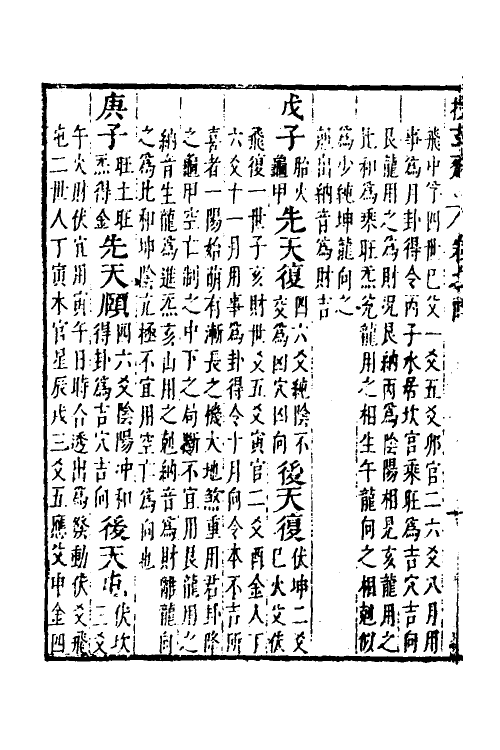 飛中孚四世巳父一爻五爻卯官二六爻八月用
事爲月卦得令丙子水居坎宫乘旺爲吉穴吉向
艮龍用之爲財況艮納丙爲陰陽相見亥龍用之
比和爲乘旺炁兊龍用之相生午龍向之相尅似
爲少純坤龍向之
尅出納音爲財吉
戊子 胎火龜甲 先天復 四六爻純陰不交爲凶穴凶向 後天復 伏坤二爻巳火父伏
飛復一世子亥財世爻五爻寅官二爻酉金人丁
六爻十一月用事爲卦得令十月向令本不吉所
喜者一陽始萌有漸長之機大地煞重用君卦降
之龜甲空亡制之中下之局斷不宜用艮龍用之
納音生龍爲進炁亥山用之尅納音爲財離龍向
之爲比和坤陰亢極不宜用空亡爲向也
庚子 旺土旺炁得金 先天頤 四六爻陰陽冲和得卦爲吉穴吉向 後天屯 伏坎三爻
午火財伏宜用寅午日時合透出爲發動伏爻飛
屯二世人丁寅木官星辰戌三爻五應父申金四